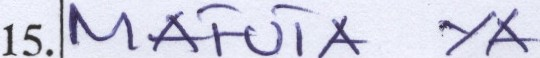 15. MAFUTA YA